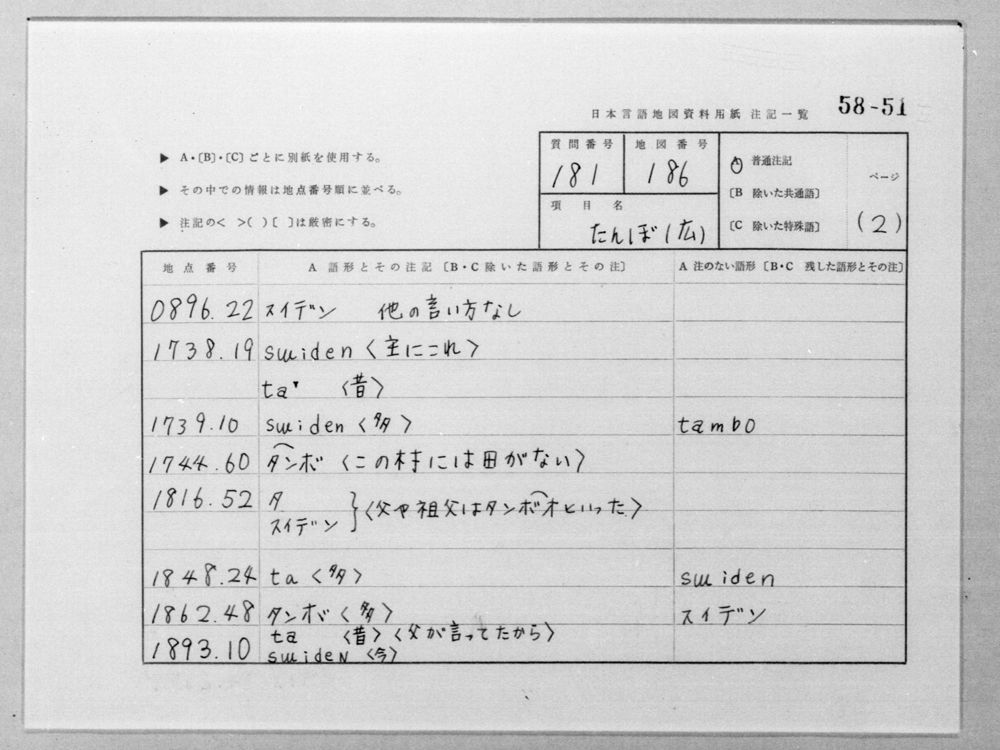 58-51
日本言語地図資料用紙 注記一覧
▶ A・〔B〕・〔C〕ごとに別紙を使用する。
▶ その中での情報は地点番号順に並べる。
▶ 注記の< >( ) [ ]は厳密にする。
質問番号 地図番号
181 186
項目名
たんぼ(広)
A 普通注記
〔B 除いた共通語〕
〔C 除いた特殊語〕
ページ
(2)
地点番号 A 語形とその注記〔B・C 除いた語形とその注〕 A 注のない語形〔B・C 残した語形とその注〕
0896.22 スイデン 他の言い方なし
1738.19 sɯiden <主にこれ>
ta <昔>
1739.10 sɯiden <多> tambo
1744.60 タンボ <この村には田がない>
1816.52 タ
スイデン } <父や祖父はタンボオといった>
1848.24 ta <多> sɯiden
1862.48 タンボ <多> スイデン
ta <昔> <父が言ってたから>
1893.10 sɯideN <今>